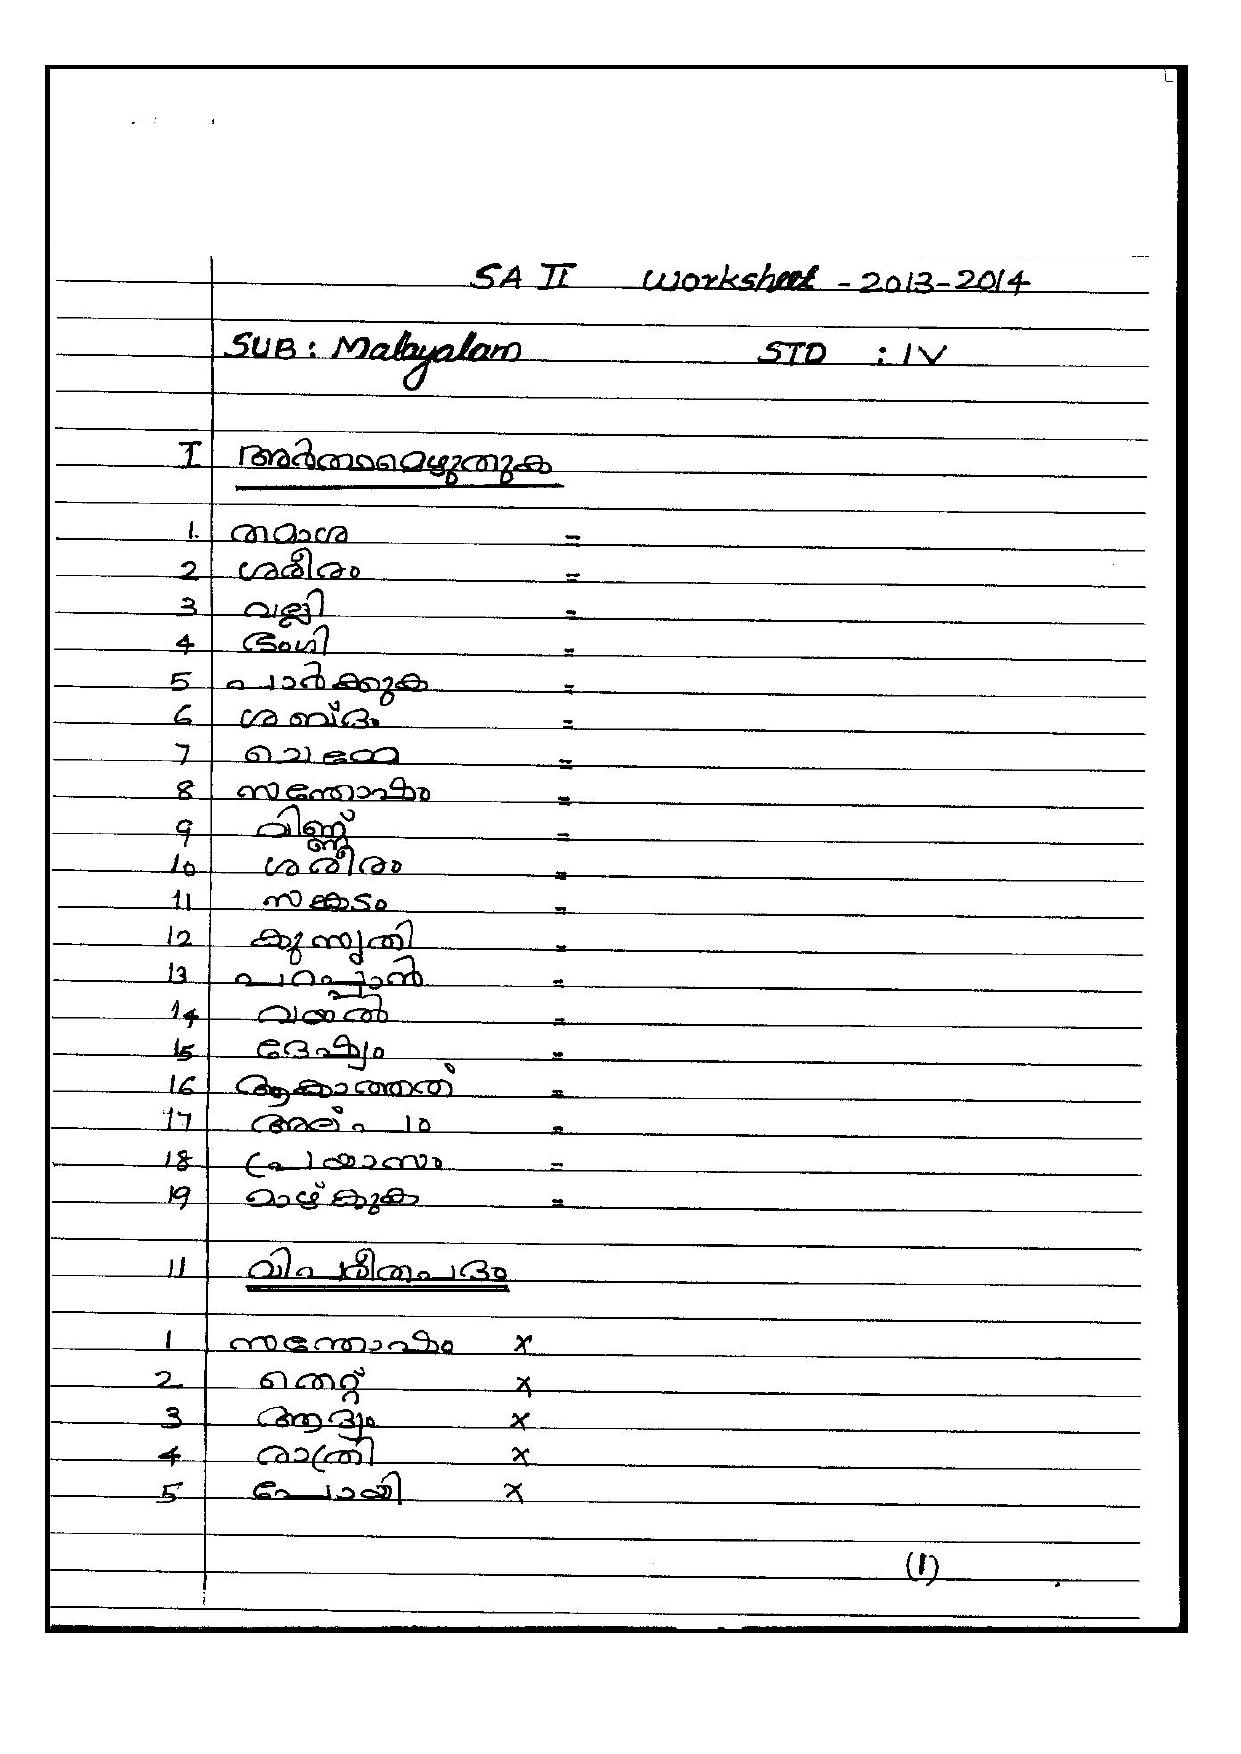 SA II Worksheet - 2013-2014
SUB: Malayalam STD : IV
I അർത്ഥമെഴുതുക
1. തമാശ =
2 ശരീരം =
3 വള്ളി =
4 ഭംഗി =
5 പാർക്കുക =
6 ശബ്ദം =
7 =
8 സന്തോഷം =
9 വിണ്ണ് =
10 ശരീരം =
11 സങ്കടം =
12 കുസൃതി =
13 പറപ്പാൻ =
14 വയൽ =
15 ദേഷ്യം =
16 ആകാത്തത് =
17 അല്പം =
18 പ്രയാസം =
19 മാഴ്കുക =
II വിപരീതപദം
1 സന്തോഷം x
2 തെറ്റ് x
3 ആദ്യം x
4 രാത്രി x
5 പോയി x
(1)